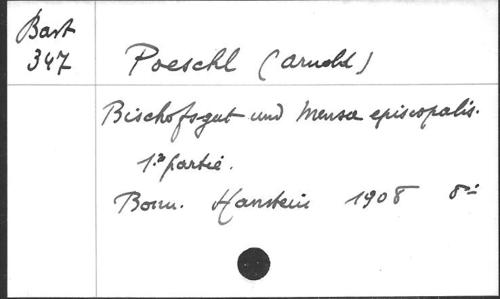 Bart
347
Poeschl (Arnold)
Bischofsgut und Mensa episcopalis.
1re partie.
Bonn. Hanstein 1908 8°